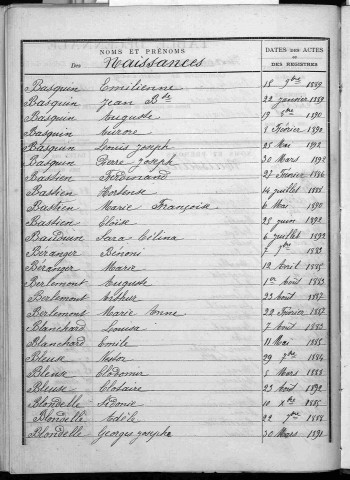 NOMS ET PRÉNOMS
DATES DES ACTES
OU
DES REGISTRES
Des Naissances
Basquin Emilienne 18 9bre 1889
Basquin Jean Bte 22 janvier 1889
Basquin Auguste 19 1890
Basquin Aurore Février 1890
Basquin Louis Joseph 25 Mai 1892
Basquin Pierre Joseph 30 Mars 1892
Bastien Ferdinand 27 Février 1886
Bastien Hortense 14 juillet 1888
Bastien Marie Françoise 6 Mai 1890
Bastien Eloïse 25 juin 1892
Baudoin Sara Célina 6 juillet 1892
Béranger Bénoni 7 7bre 1883
Béranger Marie 12 Avril 1885
Berlemont Auguste 1er Août 1883
Berlemont Arthur 23 Août 1887
Berlemont Marie Anne 22 Février 1882
Blanchard Louisa 7 Août 1883
Blanchard Emile 11 Mai 1885
Bleuse Nestor 29 7bre 1884
Bleuse Clodomir 5 Mars 1888
Bleuse Clotaire 23 Août 1892
Blondelle Sidonie 10 Xbre 1885
Blondelle Adèle 22 7bre 1888
Blondelle Georges Joseph 30 Mars 1891